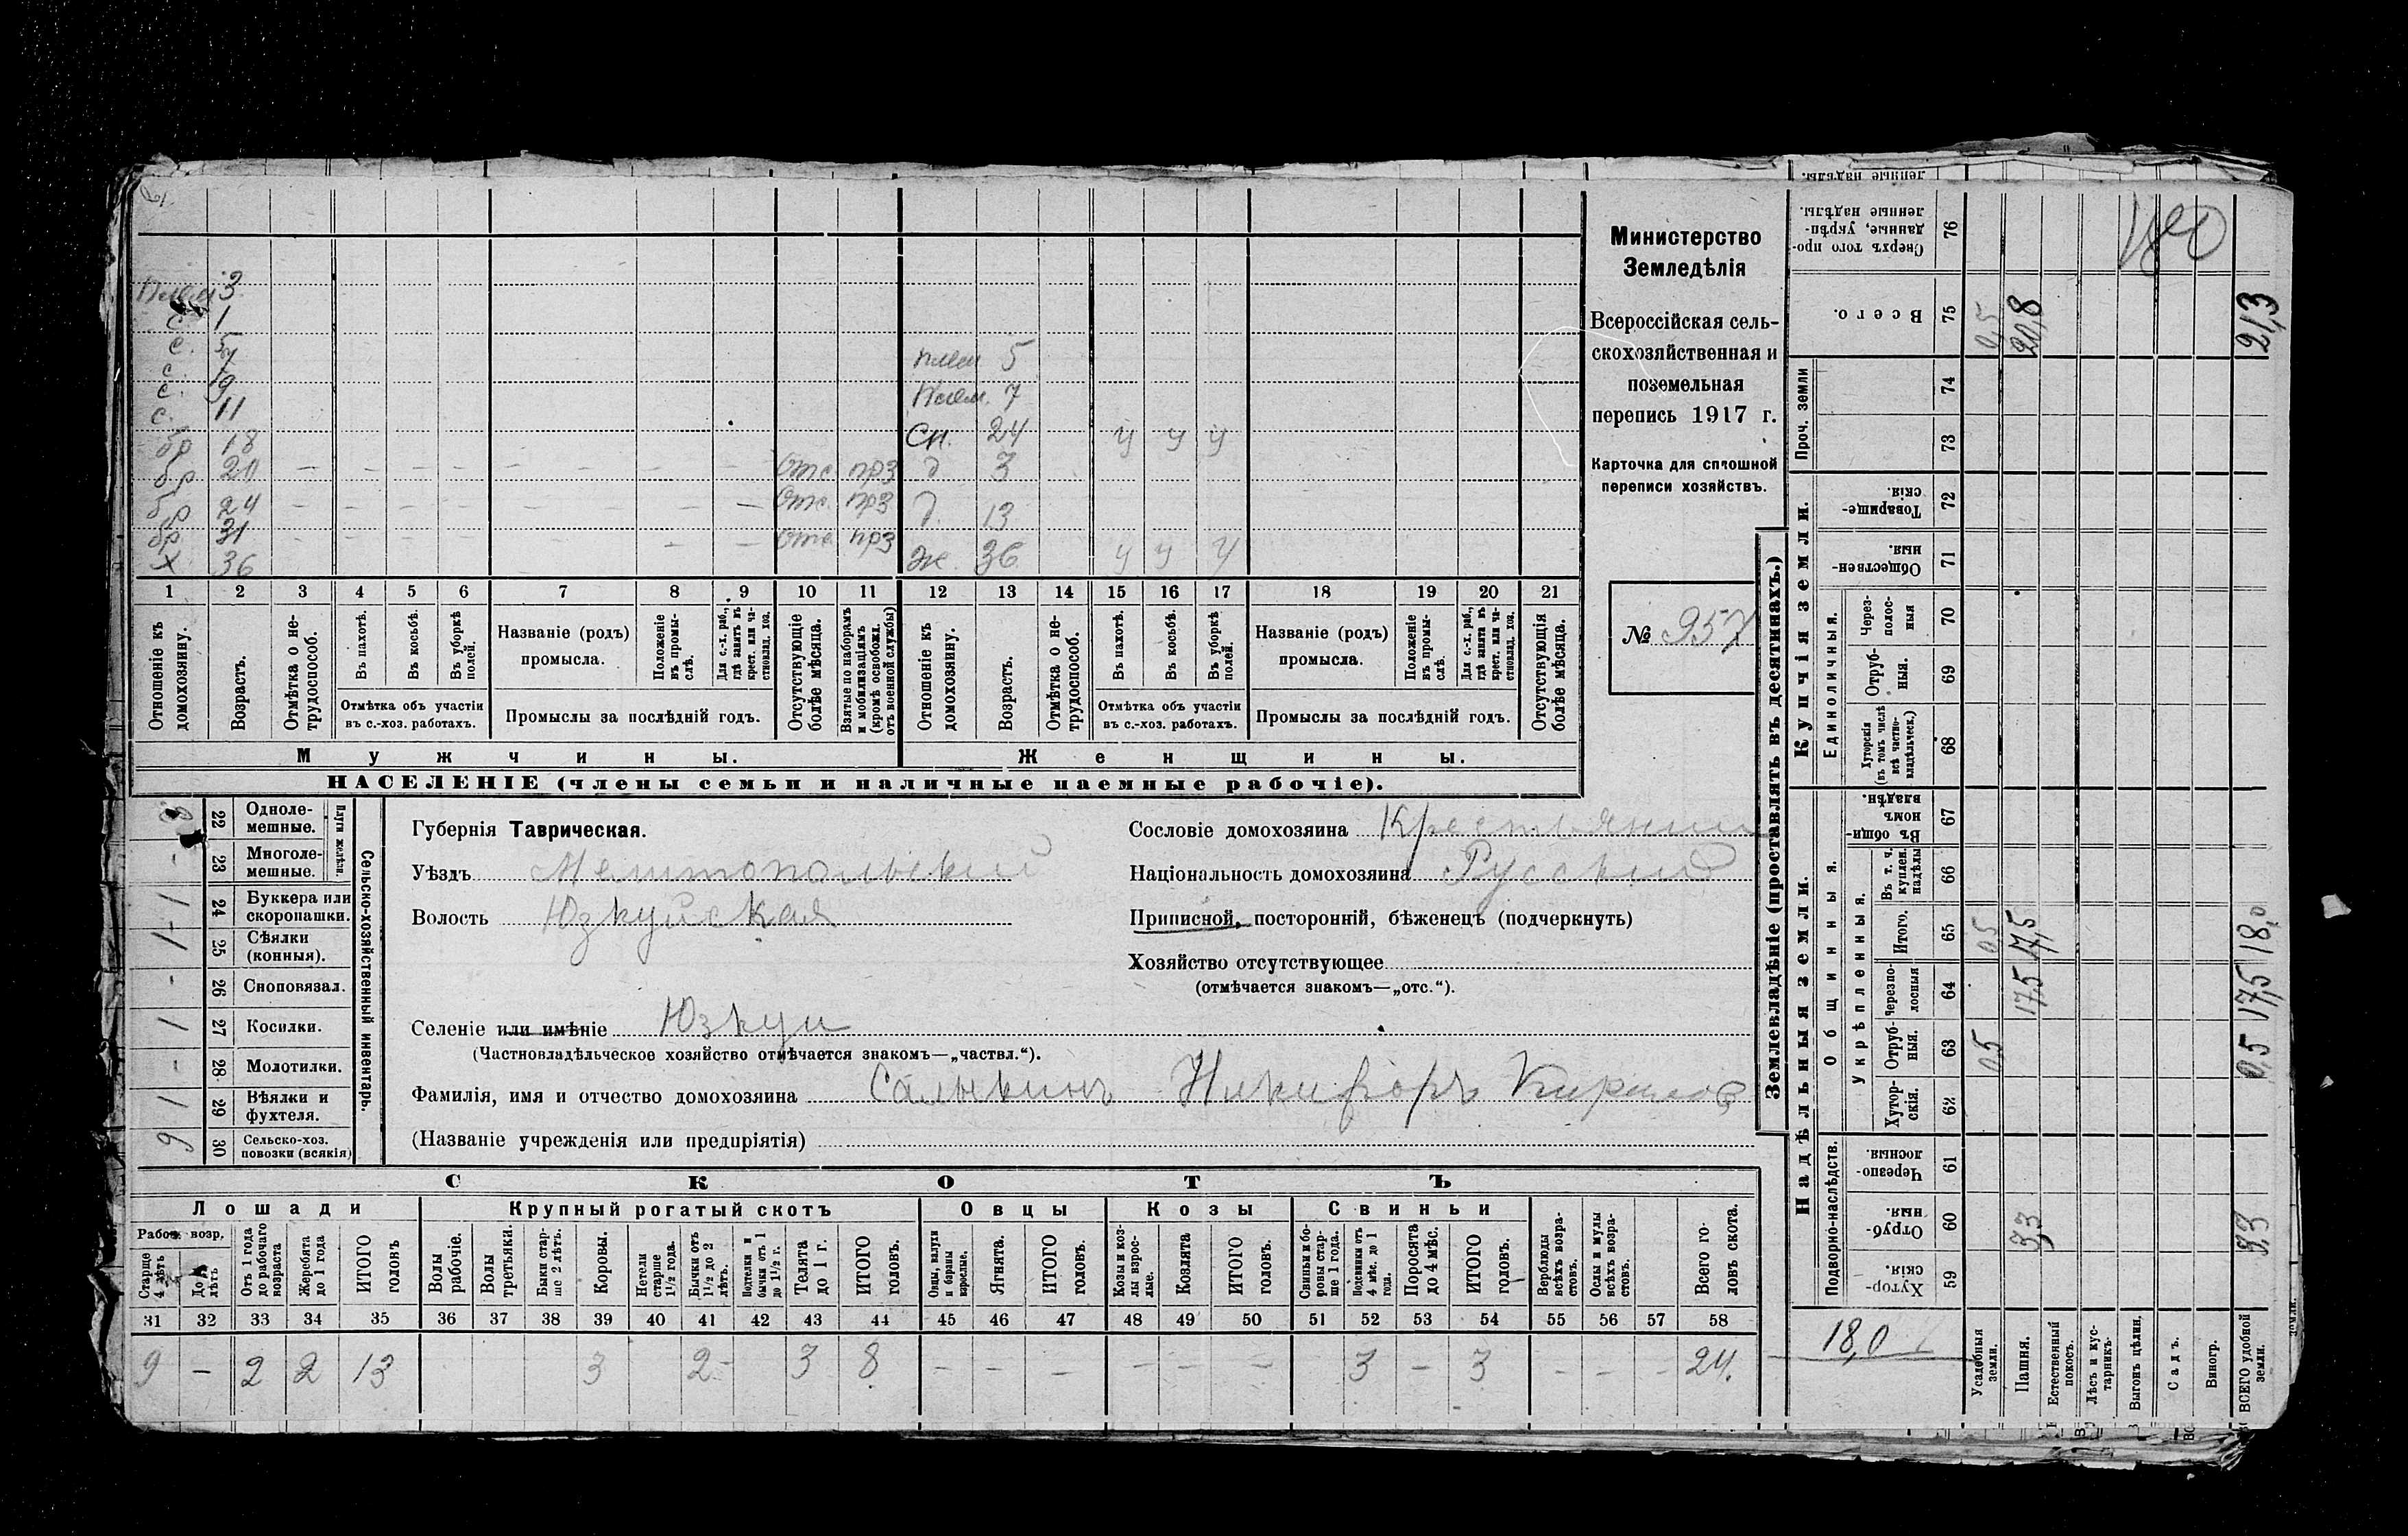 Министерство
Земледѣлія
Всероссійская сель-
скохозяйственная и
поземельная
перепись 1917 г.
Карточка для сплошной
переписи хозяйствъ.
№ 957
плем 3
с. 1
с. 5
с. 7
с. 9
с. 11
бр 18
бр 20 — — — — — — — Отс прз
бр 24 — — — — — — — Отс. прз
бр 31 — — — — — — — Отс прз
Х 36
плем. 5
Плем. 7
Сн. 24 у у у
д 3
д. 13
Ж. 36 у у у
1 2 3 4 5 6 7 8 9 10 11 12 13 14 15 16 17 18 19 20 21
Отношеніе къ домохозяину.
Возрастъ.
Отмѣтка о не-трудоспособ.
Въ пахотѣ.
Въ косьбѣ.
Въ уборкѣ полей.
Отмѣтка объ участіи
въ с.-хоз. работахъ.
Названіе (родъ)
промысла.
Положеніе въ промы-слѣ.
Для с.-х. раб., гдѣ занятъ въ крест. или ча-стновлад. хоз.
Промыслы за послѣдній годъ.
Отсутствующіе болѣе мѣсяца.
Взятые по наборамъ и мобилизаціямъ (кромѣ освобожд. отъ военной службы)
Отношеніе къ домохозяину.
Возрастъ.
Отмѣтка о не-трудоспособ.
Въ пахотѣ.
Въ косьбѣ.
Въ уборкѣ полей.
Отмѣтка объ участіи
въ с.-хоз. работахъ.
Названіе (родъ)
промысла.
Положеніе въ промы-слѣ.
Для с.-х. раб., гдѣ занята въ крест. или ча-стновлад. хоз.
Промыслы за послѣдній годъ.
Отсутствующія болѣе мѣсяца.
Мужчины. Женщины.
НАСЕЛЕНІЕ (члены семьи и наличные наемные рабочіе).
Сельско-хозяйственный инвентарь.
Плуги желѣзн.
22 Одноле-мешные.
- 23 Многоле-мешные.
1 24 Буккера или скоропашки.
1 25 Сѣялки (конныя).
- 26 Сноповязал.
1 27 Косилки.
- 28 Молотилки.
1 29 Вѣялки и фухтеля.
9 30 Сельско-хоз. повозки (всякія)
Губернія Таврическая.
Уѣздъ Мелитопольский
Волость Юзкуйская
Сословіе домохозяина Крестьянин
Національность домохозяина Русский
Приписной, посторонній, бѣженецъ (подчеркнуть)
Хозяйство отсутствующее
(отмѣчается знакомъ—„отс.“).
Селеніе или имѣніе Юзкуи
(Частновладѣльческое хозяйство отмѣчается знакомъ—„частвл.“).
Фамилія, имя и отчество домохозяина Салыкинъ Никифоръ Кирилов
(Названіе учрежденія или предпріятія)
СКОТЪ
Лошади Крупный рогатый скотъ Овцы Козы Свиньи
Рабоч. возр.
Старше 4 лѣтъ
До 4 лѣтъ
Отъ 1 года до рабочаго возраста
Жеребята до 1 года
ИТОГО головъ
Волы рабочіе.
Волы третьяки.
Быки стар-ше 2 лѣтъ.
Коровы.
Нетели старше 1½ года.
Бычки отъ 1½ до 2 лѣтъ.
Подтелки и бычки отъ 1 до 1½ г.
Телята до 1 г.
ИТОГО головъ.
Овцы, валухи и бараны взрослые.
Ягнята.
ИТОГО головъ.
Козы и коз-лы взрос-лые.
Козлята
ИТОГО головъ.
Свиньи и бо-ровы стар-ше 1 года.
Подсвинки отъ 4 мѣс. до 1 года.
Поросята до 4 мѣс.
ИТОГО головъ.
Верблюды всѣхъ возра-стовъ.
Ослы и мулы всѣхъ возра-стовъ.
Всего го-ловъ скота.
31 32 33 34 35 36 37 38 39 40 41 42 43 44 45 46 47 48 49 50 51 52 53 54 55 56 57 58
9 — 2 2 13 3 2 3 8 — — — — — — 3 — 3 — — — 24.
Землевладѣніе (проставлять въ десятинахъ.)
Надѣльныя земли.
Купчія земли.
Проч. земли
Подворно-наслѣдств.
Общинныя.
Укрѣпленныя.
Единоличныя.
Хутор-скія. 59
Отруб-ныя. 60
Черезпо-лосныя. 61
Хутор-скія. 62
Отруб-ныя. 63
Черезпо-лосныя 64
Итого. 65
Въ т. ч. куплен. надѣлы 66
Въ общин-номъ владѣн. 67
Хуторскія (въ томъ числѣ всѣ частно-владѣльческ.) 68
Отруб-ныя. 69
Через-полос-ныя 70
Обществен-ныя. 71
Товарище-скія. 72
73
74
Всего. 75
Сверхъ того про-данные, укрѣп-ленные надѣлы. 76
18,0
Усадебныя земли. 0,5 0,5 0,5
Пашня. 3,3 17,5 17,5 20,8
Естественный покосъ.
Лѣсъ и кус-тарникъ.
Выгонъ цѣлин.
Садъ.
Виногр.
ВСЕГО удобной земли. 3,3 0,5 17,5 18,0 21,3